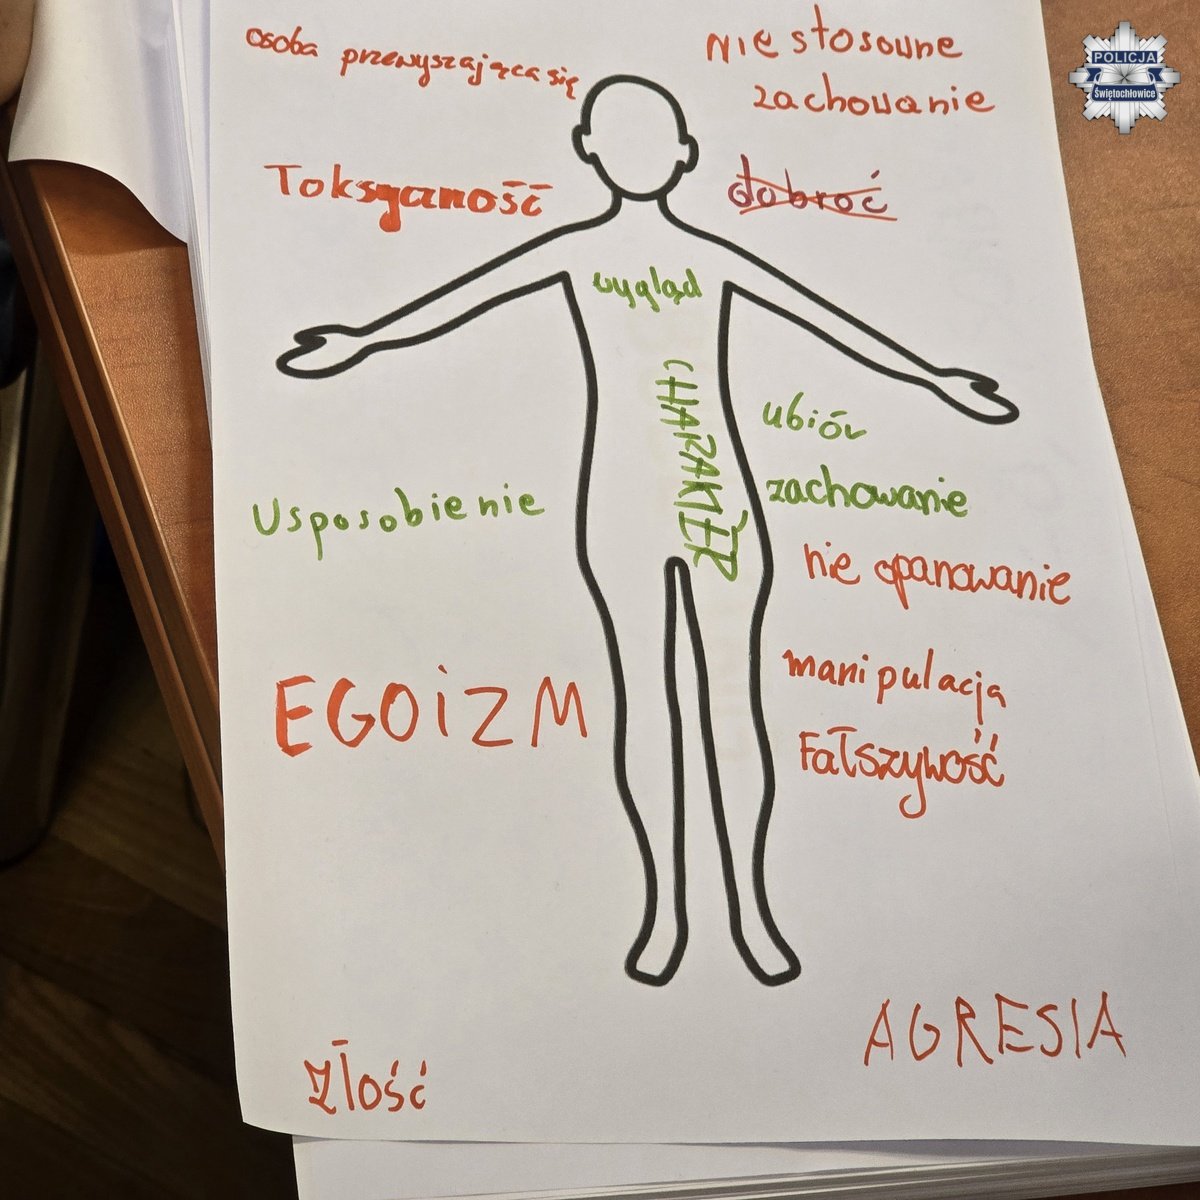 osoba przewyszająca się
nie stosowne
zachowanie
POLICJA
Świętochłowice
Toksyczność
dobroć
wygląd
CHARAKTER
ubiór
zachowanie
Usposobienie
nie opanowanie
manipulacja
EGOiZM
Fałszywość
AGRESIA
złość